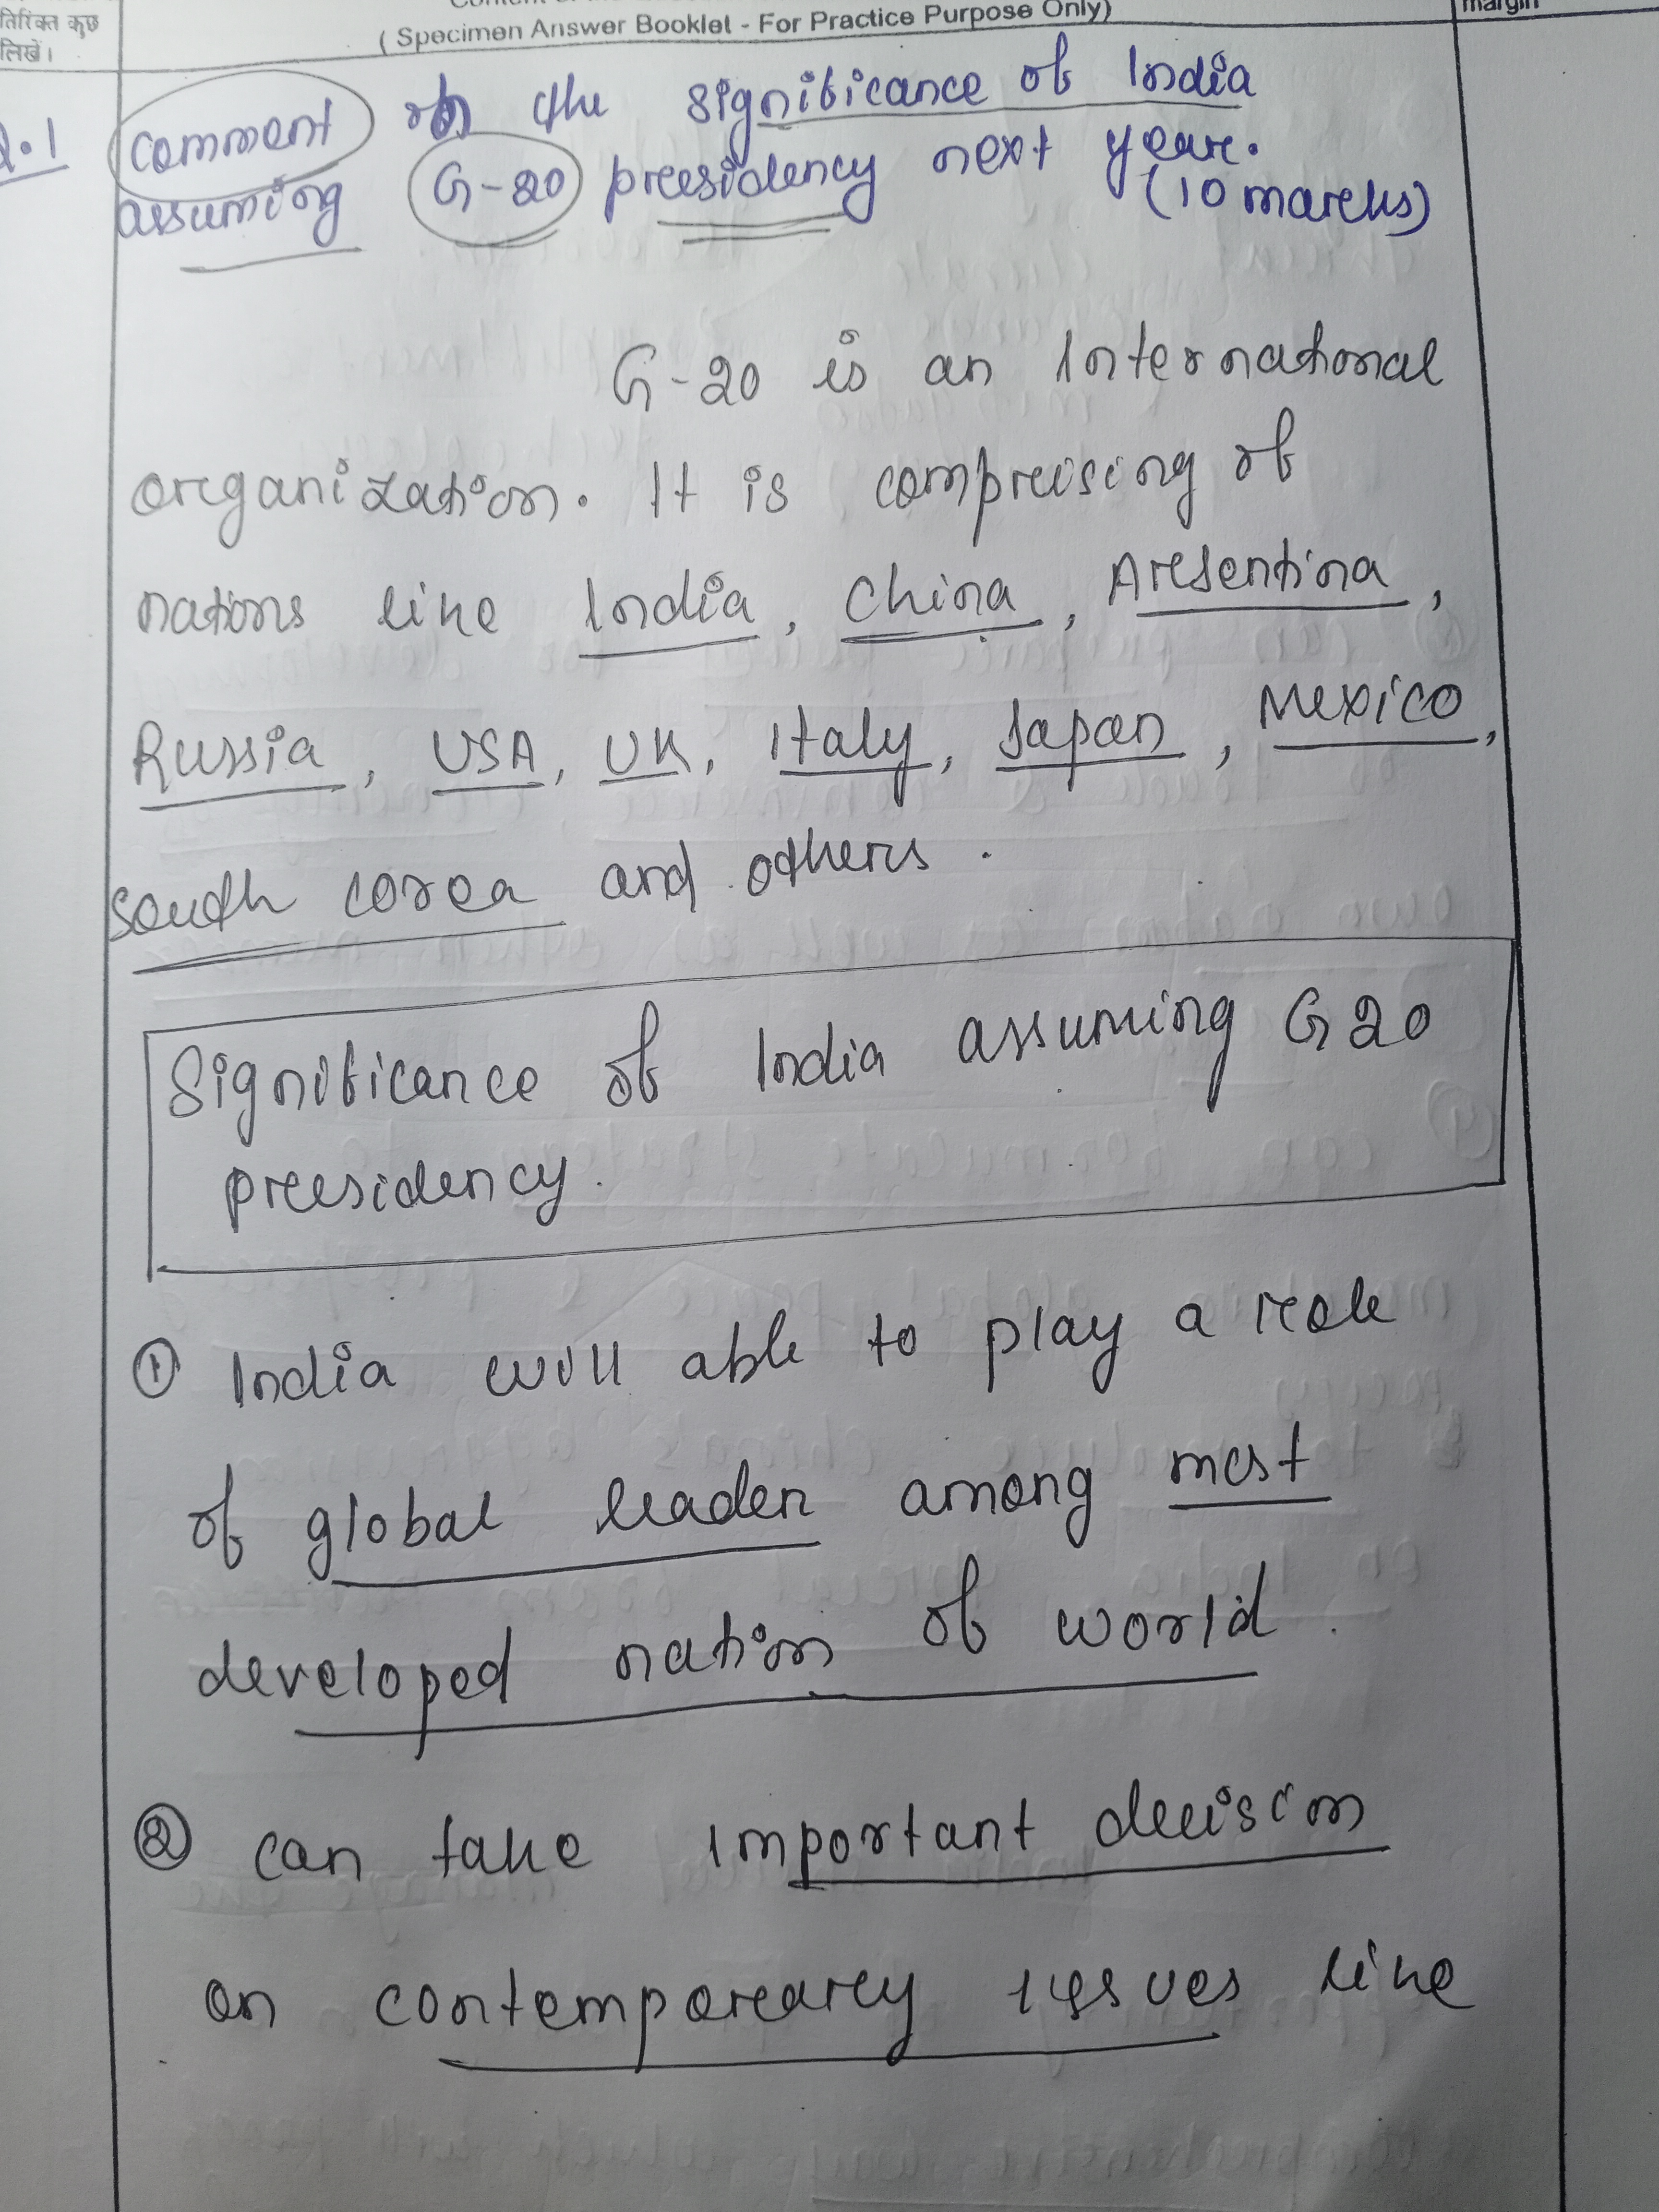 तिरिक्त कुछ
लिखें।
( Specimen Answer Booklet - For Practice Purpose Only)
margin
Q.1 comment on the significance of India
assuming G-20 presidency next year.
(10 marks)
G-20 is an International
organization. It is comprising of
nations like India, China, Argentina,
Russia, USA, UK, Italy, Japan, Mexico,
South Corea and others.
Significance of India assuming G20
presidency.
① India will able to play a role
of global leader among most
developed nation of world.
② can take important decision
on contemporary issues like